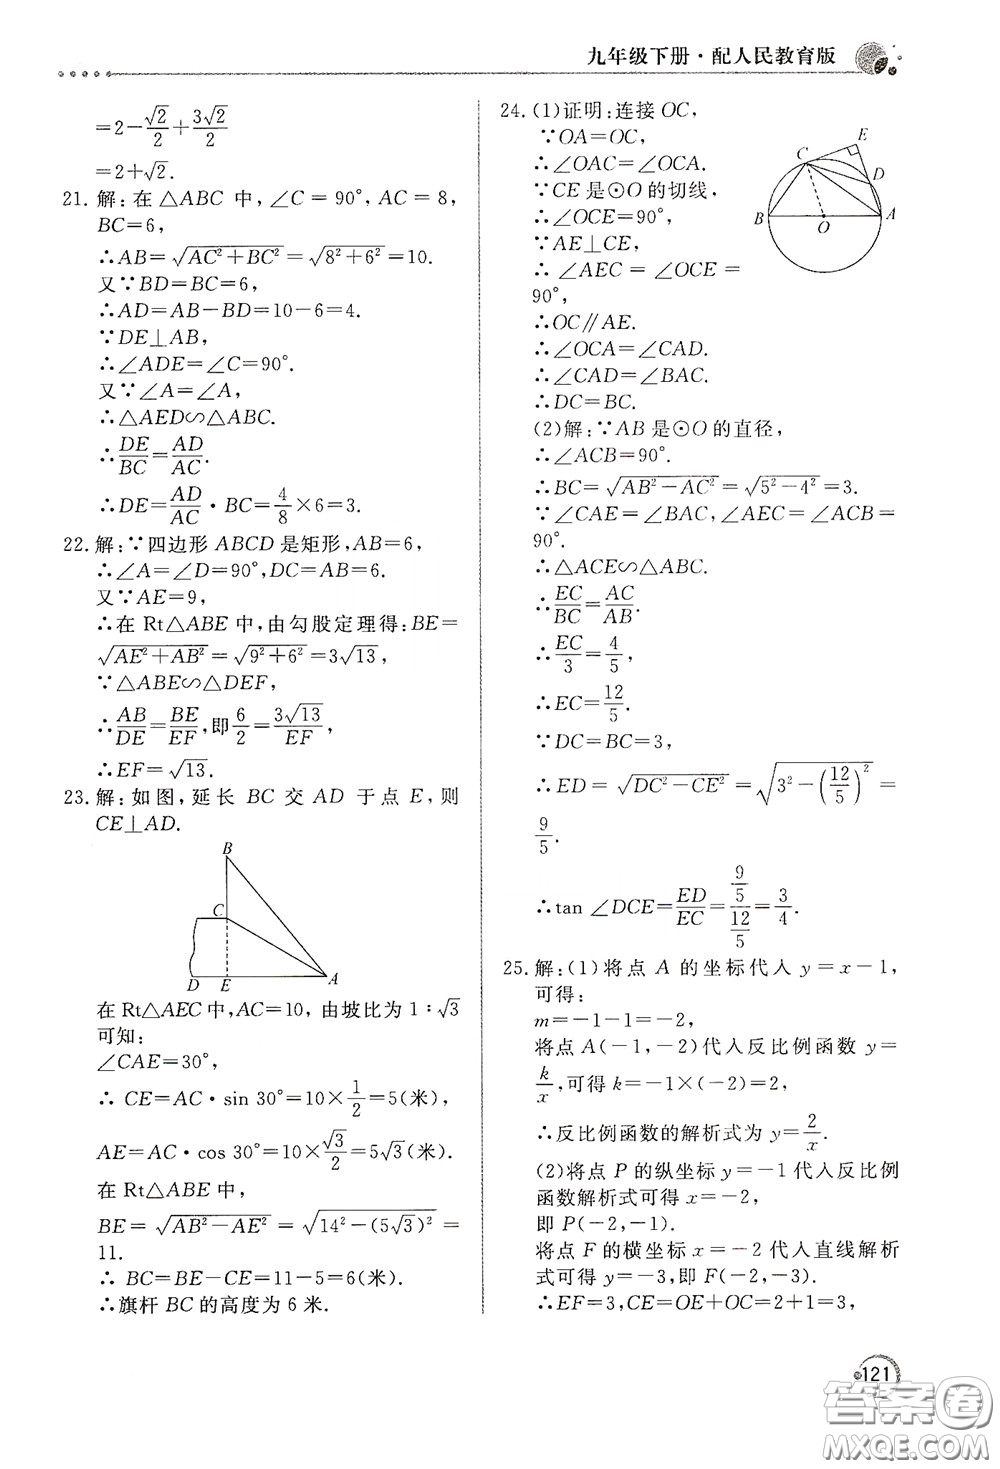 九年级下册·配人民教育版
=2-√2/2+3√2/2
=2+√2.
21. 解:在△ABC中,∠C=90°,AC=8,
BC=6,
∴AB=√(AC²+BC²)=√(8²+6²)=10.
又∵BD=BC=6,
∴AD=AB-BD=10-6=4.
∵DE⊥AB,
∴∠ADE=∠C=90°.
又∵∠A=∠A,
∴△AED∽△ABC.
∴DE/BC=AD/AC.
∴DE=AD/AC·BC=4/8×6=3.
22. 解:∵四边形ABCD是矩形,AB=6,
∴∠A=∠D=90°,DC=AB=6.
又∵AE=9,
∴在Rt△ABE中,由勾股定理得:BE=
√(AE²+AB²)=√(9²+6²)=3√13,
∵△ABE∽△DEF,
∴AB/DE=BE/EF,即6/2=3√13/EF,
∴EF=√13.
23. 解:如图,延长BC交AD于点E,则
CE⊥AD.
B
C
D E A
在Rt△AEC中,AC=10,由坡比为1:√3
可知:
∠CAE=30°,
∴CE=AC·sin 30°=10×1/2=5(米),
AE=AC·cos 30°=10×√3/2=5√3(米).
在Rt△ABE中,
BE=√(AB²-AE²)=√(14²-(5√3)²)=
11.
∴BC=BE-CE=11-5=6(米).
∴旗杆BC的高度为6米.
24. (1)证明:连接OC,
∵OA=OC,
∴∠OAC=∠OCA.
∵CE是⊙O的切线,
∴∠OCE=90°,
∵AE⊥CE,
∴∠AEC=∠OCE=
90°,
∴OC∥AE.
∴∠OCA=∠CAD.
∴∠CAD=∠BAC.
∴DC=BC.
E
C
D
B O A
(2)解:∵AB是⊙O的直径,
∴∠ACB=90°.
∴BC=√(AB²-AC²)=√(5²-4²)=3.
∵∠CAE=∠BAC,∠AEC=∠ACB=
90°.
∴△ACE∽△ABC.
∴EC/BC=AC/AB.
∴EC/3=4/5,
∴EC=12/5.
∵DC=BC=3,
∴ED=√(DC²-CE²)=√(3²-(12/5)²)=
9/5.
∴tan∠DCE=ED/EC=(9/5)/(12/5)=3/4.
25. 解:(1)将点A的坐标代入y=x-1,
可得:
m=-1-1=-2,
将点A(-1,-2)代入反比例函数y=
k/x,可得k=-1×(-2)=2,
∴反比例函数的解析式为y=2/x.
(2)将点P的纵坐标y=-1代入反比例
函数解析式可得x=-2,
即P(-2,-1).
将点F的横坐标x=-2代入直线解析
式可得y=-3,即F(-2,-3).
∴EF=3,CE=OE+OC=2+1=3,
121
答案圈
MXQE.COM